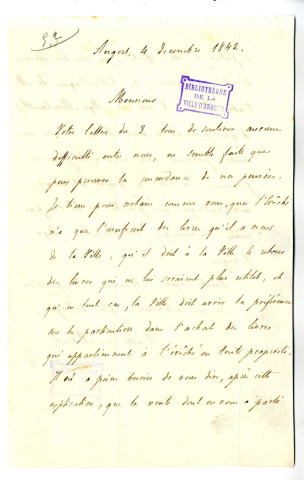 Angers, 4 décembre 1842.
BIBLIOTHÈQUE
DE LA
VILLE D'ANGERS
Monsieur
Votre lettre du 3 loin de soulever aucune
difficulté entre nous, ne semble faite que
pour prouver la concordance de nos pensées.
Je tiens pour certain comme vous, que l'évêché
n'a que l'usufruit des livres qu'il a reçus
de la Ville, qu'il doit à la Ville le retour
des livres qui ne lui seraient plus utiles, et
qu'en tout cas, la Ville doit avoir la préférence
sur les particuliers dans l'achat des livres
qui appartiennent à l'évêché en toute propriété.
Il est à peine besoin de vous dire, après cette
explication, que la vente dont on vous a parlé